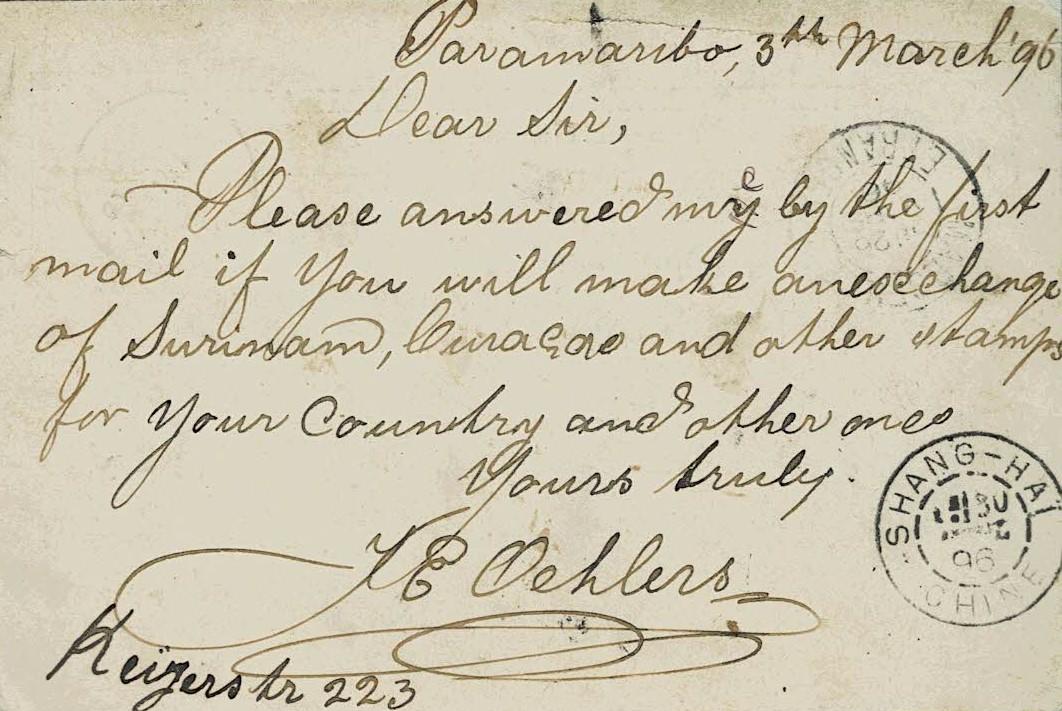 Paramaribo, 3th March '96
Dear Sir,
Please answered me by the first
mail if You will make an exchange
of Surinam, Curaçao and other stamps
for Your Country and other ones
Yours truly.
J E Oehlers
Keizerstr 223
SHANG-HAI
96
CHINE